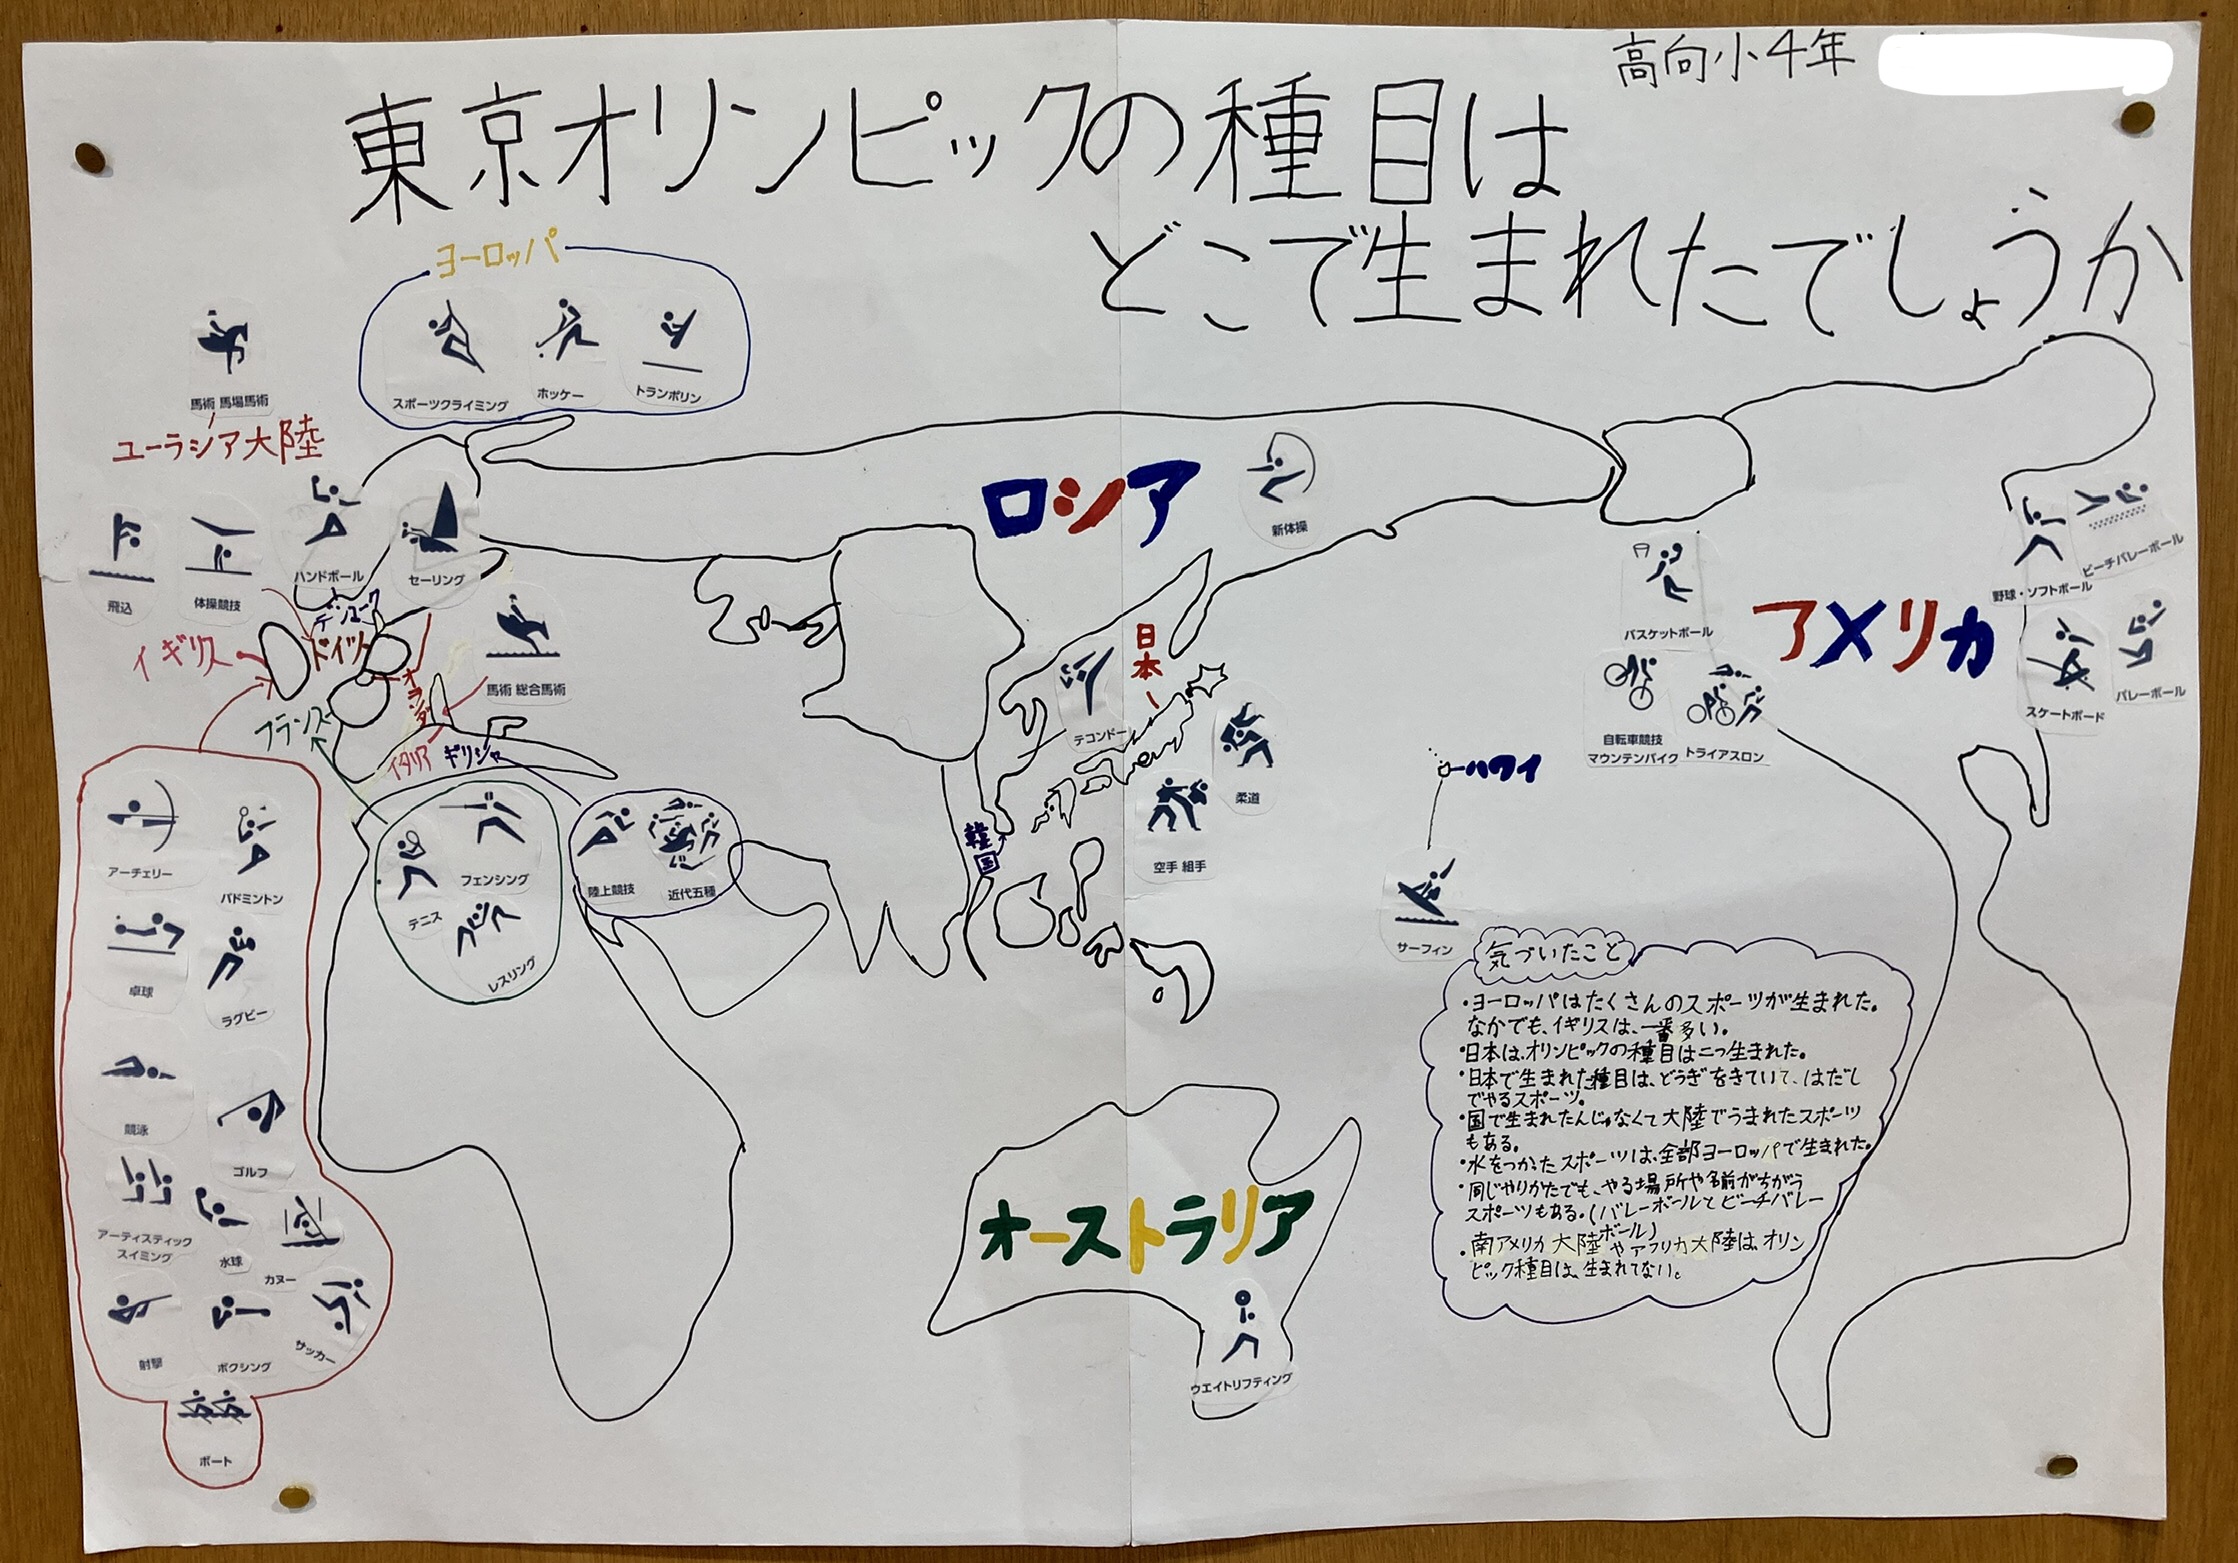 高向小4年
東京オリンピックの種目は
どこで生まれたでしょうか
ヨーロッパ
スポーツクライミング
ホッケー
トランポリン
馬術 馬場馬術
ユーラシア大陸
飛込
体操競技
ハンドボール
セーリング
デンマーク
イギリス
ドイツ
オランダ
フランス
馬術 総合馬術
イタリア
ギリシャ
ロシア
新体操
日本
テコンドー
柔道
空手 組手
韓国
ハワイ
サーフィン
バスケットボール
自転車競技
マウンテンバイク
トライアスロン
アメリカ
野球・ソフトボール
ビーチバレーボール
スケートボード
バレーボール
アーチェリー
バドミントン
卓球
ラグビー
競泳
ゴルフ
アーティスティック
スイミング
水球
カヌー
射撃
ボクシング
サッカー
ボート
テニス
フェンシング
レスリング
陸上競技
近代五種
オーストラリア
ウエイトリフティング
気づいたこと
・ヨーロッパはたくさんのスポーツが生まれた。
なかでも、イギリスは、一番多い。
・日本は、オリンピックの種目は二つ生まれた。
・日本で生まれた種目は、どうぎをきていて、はだし
でやるスポーツ。
・国で生まれたんじゃなくて大陸でうまれたスポーツ
もある。
・水をつかったスポーツは、全部ヨーロッパで生まれた。
・同じやりかたでも、やる場所や名前がちがう
スポーツもある。(バレーボールとビーチバレー
ボール)
・南アメリカ大陸やアフリカ大陸は、オリン
ピック種目は、生まれてない。